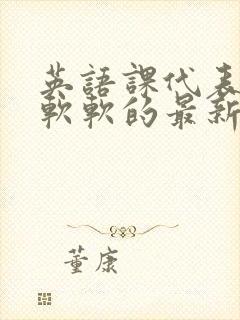 英語課代表
軟軟的最新
董康